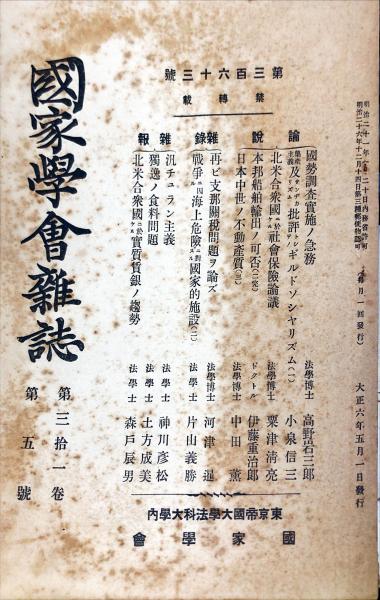 明治二十一年 二十日内務省許可
明治二十六年十二月十四日第三種郵便物認可
(毎月一回發行)
大正六年五月一日發行
第三百六十三號
禁轉載
論說
國勢調査實施ノ急務 法學博士 高野岩三郎
集產主義及サンヂカリズム批評トシテノギルドソシヤリズム(一) 小泉信三
北米合衆國ニ於ケル社會保險論議 法學博士 粟津淸亮
本邦船舶輸出ノ可否(二完) ドクトル 伊藤重治郎
日本中世ノ不動產質(三) 法學博士 中田薰
雜錄
再ビ支那關稅問題ヲ論ズ 法學博士 河津暹
戰爭ニ因ル海上危險ニ對スル國家的施設(二) 法學士 片山義勝
雜報
汎チュラン主義 法學士 神川彥松
獨逸ノ食料問題 法學士 土方成美
北米合衆國ニ於ケル實質賃銀ノ趨勢 法學士 森戶辰男
東京帝國大學法科大學內
國家學會
國家學會雜誌
第三拾一卷
第五號